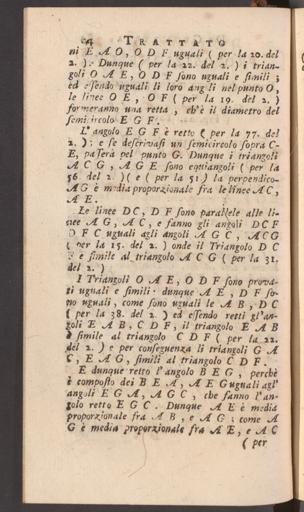 64 TRATTATO
ni E A O, O D F uguali ( per la 20. del
2. ). Dunque ( per la 22. del 2. ) i trian-
goli O A E, O D F sono uguali e simili ;
ed essendo uguali li loro angoli nel punto O,
le linee O E, O F ( per la 19. del 2. )
formeranno una retta, ch'è il diametro del
semicircolo E G F.
L'angolo E G F è retto ( per la 77. del
2. ) : e se descrivasi un semicircolo sopra C-
E, passerà pel punto G. Dunque i triangoli
A C G, A G E sono equiangoli ( per la
56. del 2. ) ( e ( per la 51. ) la perpendico-
AG è media proporzionale fra le linee A C,
A E.
Le linee D C, D F sono parallele alle li-
nee A G, A C, e fanno gli angoli D C F
D F C uguali agli angoli A G C, A C G
( per la 15. del 2. ) onde il Triangolo D C
F è simile al triangolo A C G ( per la 31.
del 2. )
I Triangoli O A E, O D F sono prova-
ti uguali e simili : dunque A E, D F so-
no uguali, come sono uguali le A B, D C
( per la 38. del 2. ) ed essendo retti gl'an-
goli E A B, C D F, il triangolo E A B
è simile al triangolo C D F ( per la 22.
del 2. ) e per conseguenza li triangoli G A
C, E A G, simili al triangolo C D F.
E dunque retto l'angolo B E G, perchè
è composto dei B E A, A E G uguali agl'
angoli E G A, A G C, che fanno l'an-
golo retto E G C. Dunque A E è media
proporzionale fra A B, e A G : come A
G è media proporzionale fra A E, e A C
( per